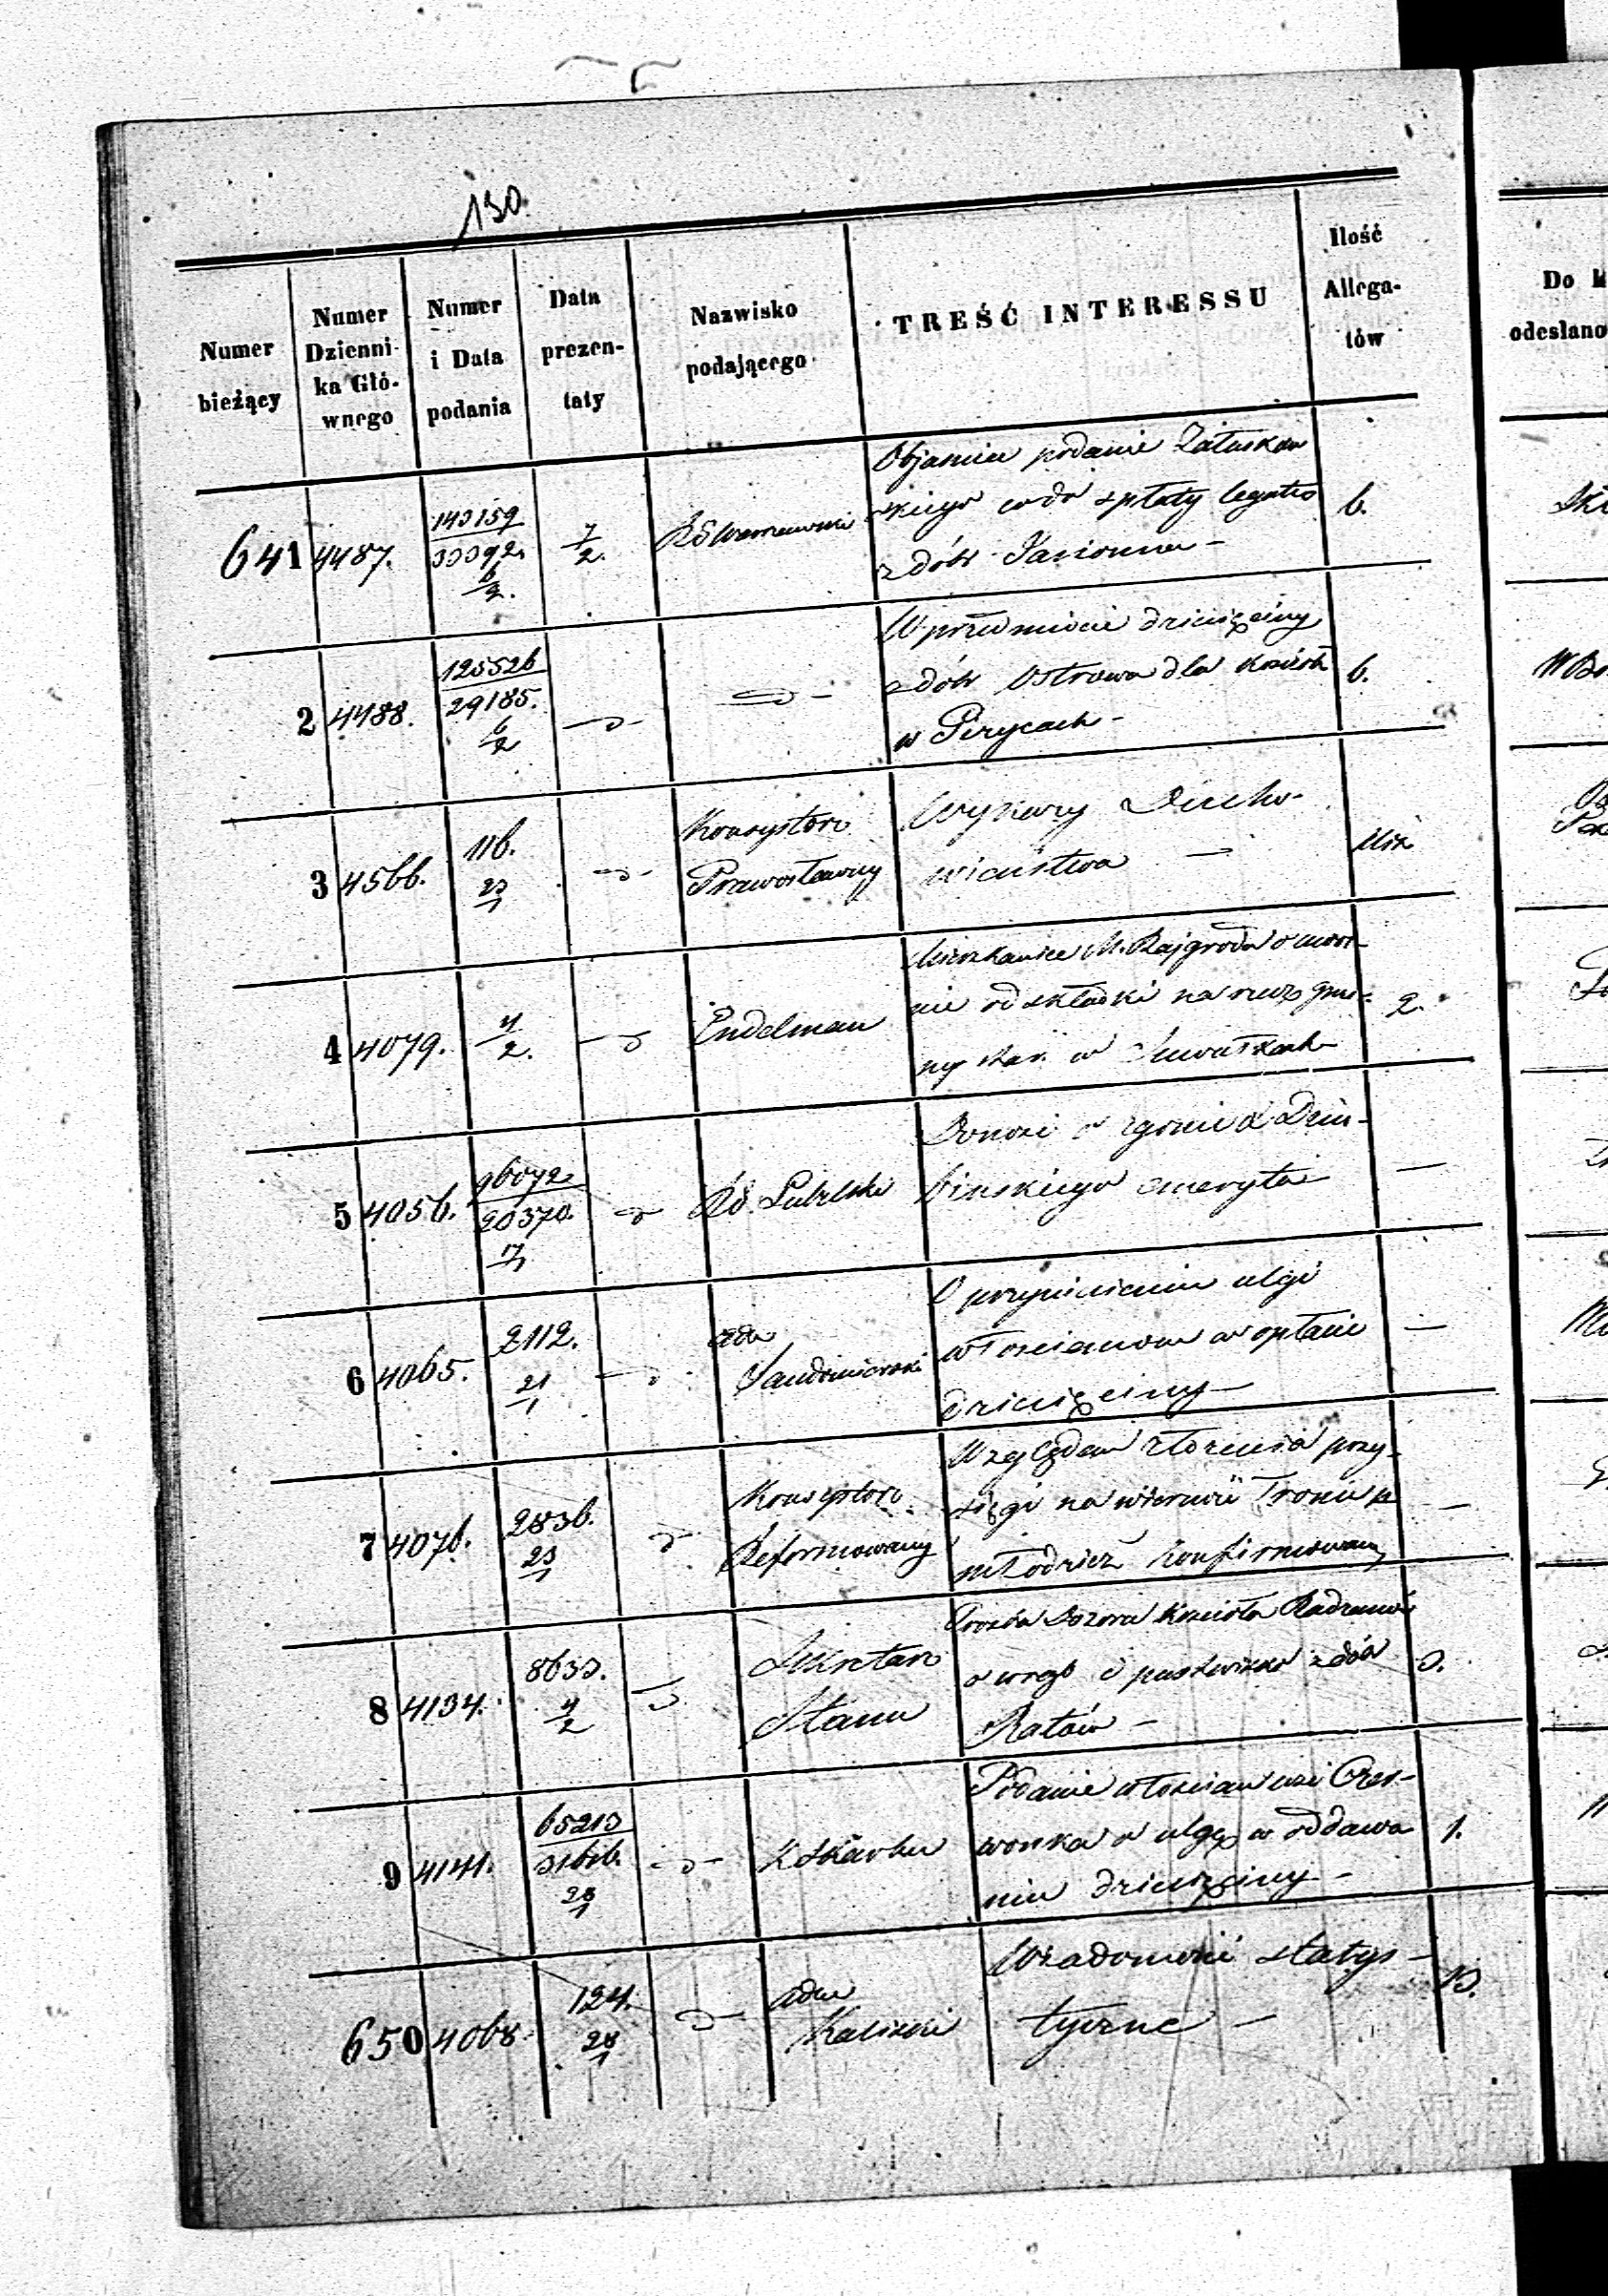 130.
Numer bieżący
Numer Dzienni-ka Głó-wnego
Numer i Data podania
Data prezen-taty
Nazwisko podającego
TREŚĆ INTERESSU
Ilość Allega-tów
Do
odesłano
641 4487. 143159 33392. 6/2. 7/2.
Objaśnia podanie Załuskow
skiego co do spłaty legatu
z dóbr Jasionna - 6.
2 4488. 125526 29185. 6/2
W przedmiocie dziesięciny
z dóbr Ostrowa dla kościoła
w - 6.
3 4566. 116. 23/1
Konsystorz
Prawosławny
Wykazy Ducho-
wieństwa -
4 4079. 4/2.
Endelman
Mieszkaniec M. Rajgroda o uwol-
nie od składki na rzecz gmi-
ny w Suwałkach - 2.
5 4056. 96072 20370. 17/1
RG. Lubelski
Donosi o zgonie Dem-
bińskiego emeryta -
6 4065. 2112. 21/1
Adm
Sandomierski
O przyniesieniu ulgi
włościanom w opłacie
dziesięciny -
7 4076. 2836. 23/1
Konsystorz
Reformowany
Względem złożenia przy-
sięgi na wierność Tronu p
młodzież konfirmowaną -
8 4134. 8633. 4/2
Sekretarz
Stanu
Prośba Dozoru Kościoła Radzanów
o wrąb i pastwisko z dóbr
Ratów - 3.
9 4141. 65213 31616. 28/1
K Skarbu
Podanie włościan wsi Czer-
wonka o ulgę w oddawa
niu dziesięciny - 1.
650 4068. 124. 28/1
Adm
Kaliski
Wiadomość statys-
tyczne - 13.